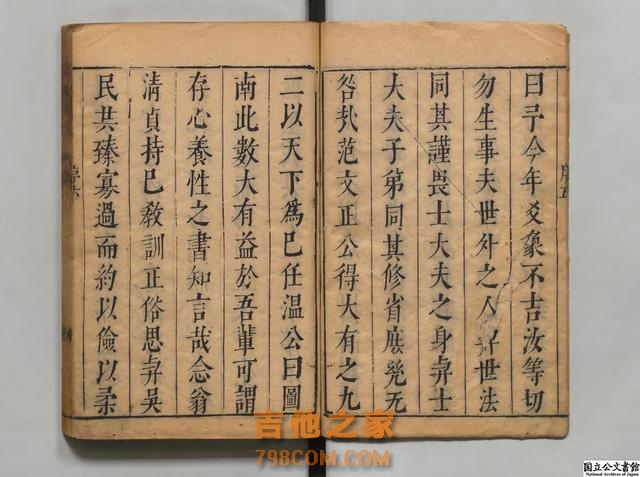 曰予今年爻象不吉汝等切
勿生事夫世外之人與世法
同其謹畏士大夫之身與士
大夫子弟同其修省庶幾无
咎於范文正公得大有之九
序五
二以天下為已任溫公曰圖
南此數大有益於吾輩可謂
存心養性之書知言哉念翁
清貞持已教訓正俗思與吳
民共臻寡過而約以儉以柔
序六
吉他之家
798COM.COM
国立公文書館
National Archives of Japan